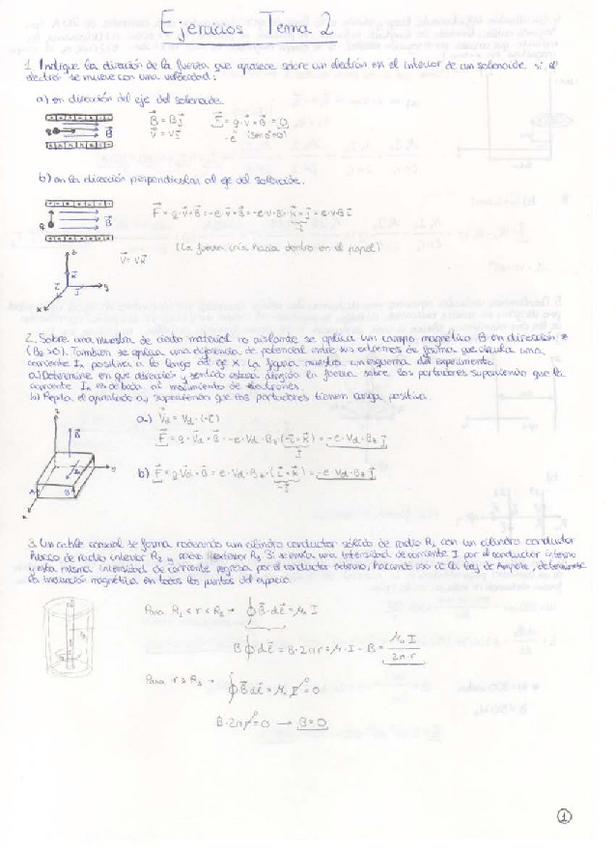 Ejercicios Tema 2
1. Indique la dirección de la fuerza que aparece sobre un electrón en el interior de un solenoide si el
electrón se mueve con una velocidad:
a) en dirección del eje del solenoide.
B⃗ = B j⃗
F⃗ = q · v⃗ × B⃗ = 0
v⃗ = v j⃗
b) en la dirección perpendicular al eje del solenoide.
F⃗ = q · v⃗ × B⃗ = -e · v⃗ × B⃗ = -e · v · B · k⃗ × j⃗ = e · v · B i⃗
(La fuerza iría hacia dentro en el papel)
v⃗ = v k⃗
2. Sobre una muestra de cierto material no aislante se aplica un campo magnético B en dirección z
(Bz > 0). También se aplica una diferencia de potencial entre sus extremos de forma que circula una
corriente Ix positiva a lo largo del eje x. La figura muestra un esquema del experimento.
a) Determine en qué dirección y sentido estará dirigida la fuerza sobre los portadores suponiendo que la
corriente Ix es debida al movimiento de electrones.
b) Repita el apartado a, suponiendo que los portadores tienen carga positiva.
a) V⃗d = Vd · (-i⃗)
F⃗ = q · V⃗d × B⃗ = -e · Vd · Bz (-i⃗ × k⃗) = -e · Vd · Bz j⃗
b) F⃗ = q V⃗d × B⃗ = e · Vd · Bz · (i⃗ × k⃗) = -e · Vd · Bz j⃗
3. Un cable coaxial se forma rodeando un cilindro conductor sólido de radio R1 con un cilindro conductor
hueco de radio interior R2 y radio exterior R3. Si se envía una intensidad de corriente I por el conductor interno
y esta misma intensidad de corriente regresa por el conductor externo, haciendo uso de la ley de Ampere, determinese
la inducción magnética en todos los puntos del espacio.
Para R1 < r < R2 → ∮ B⃗ · dl⃗ = μ₀ I
B ∮ dl⃗ = B · 2π r = μ · I → B = μ₀ I / 2π · r
Para r ≥ R3 → ∮ B⃗ dl⃗ = μ₀ I = 0
B · 2π r = 0 → B = 0
1